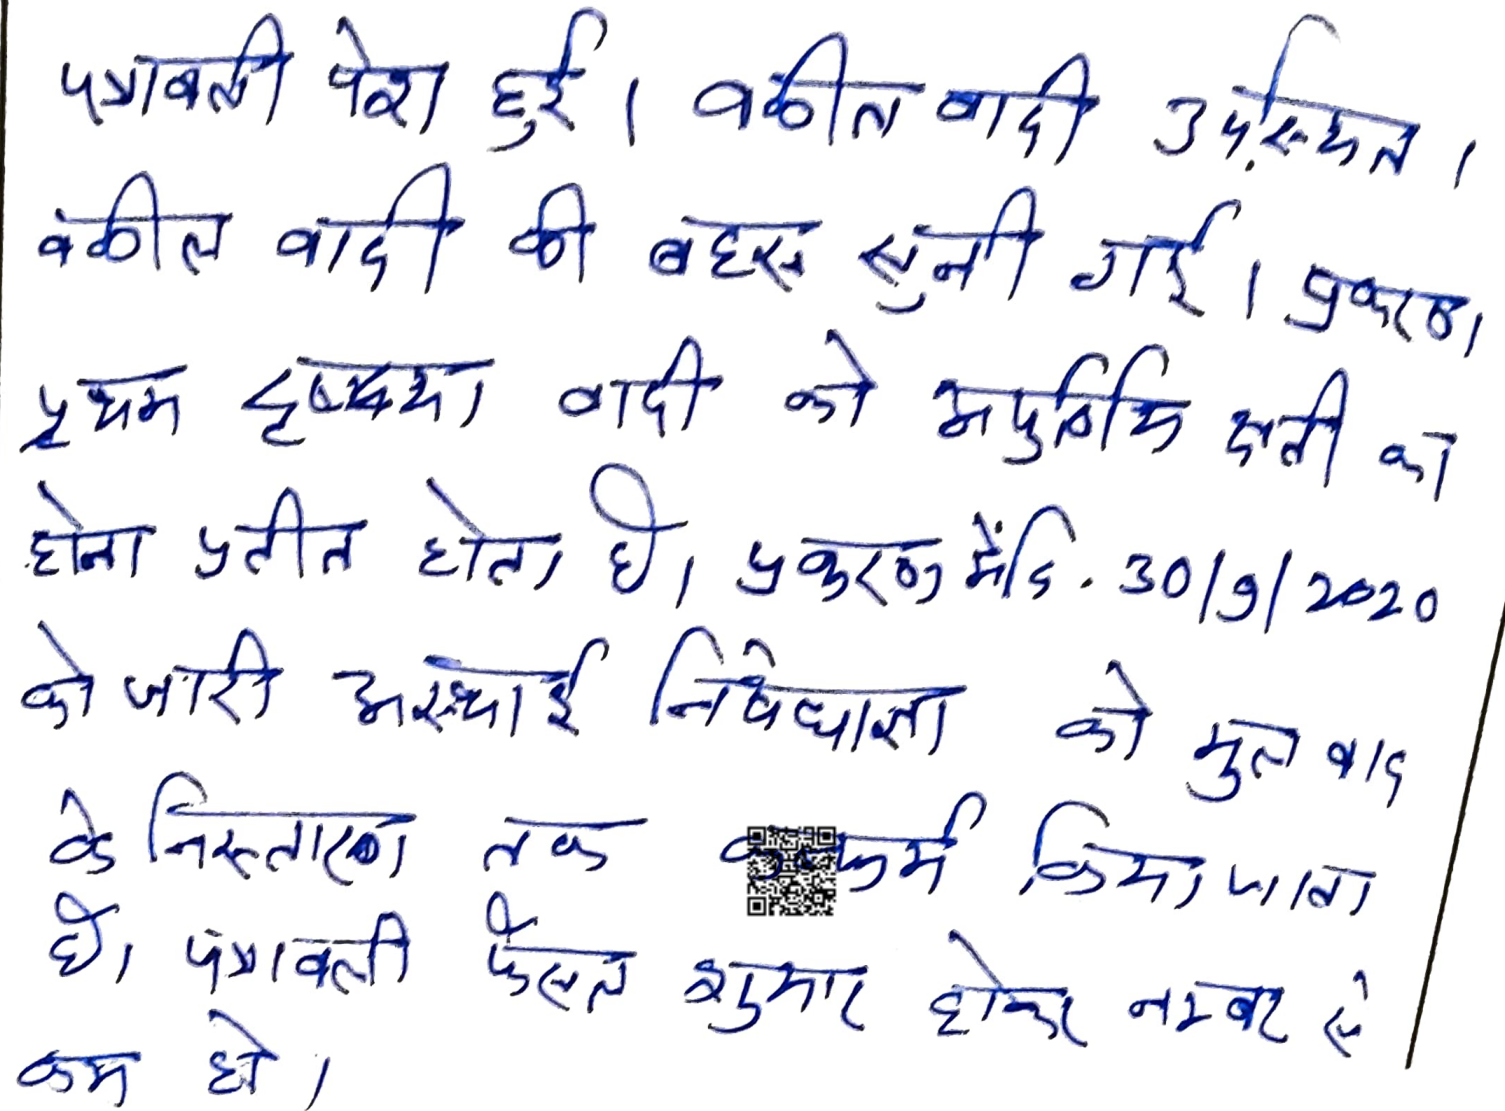 पत्रावली पेश हुई। वकील वादी उपस्थित।
वकील वादी की बहस सुनी गई। प्रकरण
प्रथम दृष्टया वादी को अपुर्तनिय क्षती का
होना प्रतीत होता है। प्रकरण में दि. 30/9/2020
को जारी अस्थाई निषेधाज्ञा को मुल वाद
के निस्तारण तक कन्फर्म किया जाता
है। पत्रावली फैसल शुमार होकर नम्बर से
कम हो।